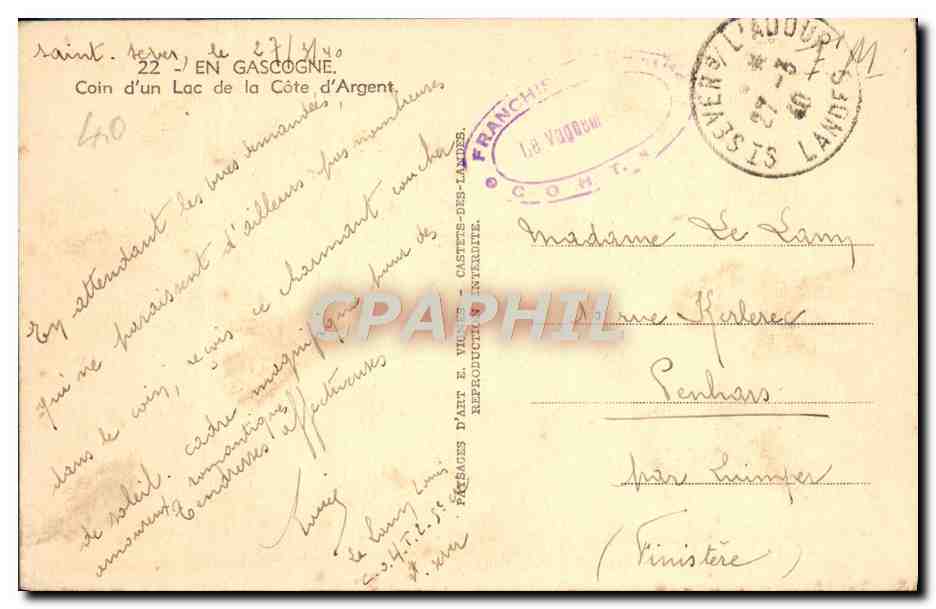 Saint-Sever, le 27/3/40
22 - EN GASCOGNE.
Coin d'un Lac de la Côte d'Argent.
40
En attendant les vues demandées,
qui ne paraissent d'ailleurs pas nombreuses
dans le coin, reçois ce charmant coucher
de soleil. Cadre magnifique pour des
amoureux romantiques
Tendresses affectueuses
Louis
Le Lamy Louis
St. Sever
PAYSAGES D'ART E. VIGNES - CASTETS-DES-LANDES.
REPRODUCTION INTERDITE.
FRANCHISE
Le Vaguem
C.O.M.T.
ST SEVER S/ L'ADOUR
27 - 3
40
LANDES
F M
Madame Le Lamy
rue Kerlerec
Penhars
par Quimper
(Finistère)
CPAPHIL